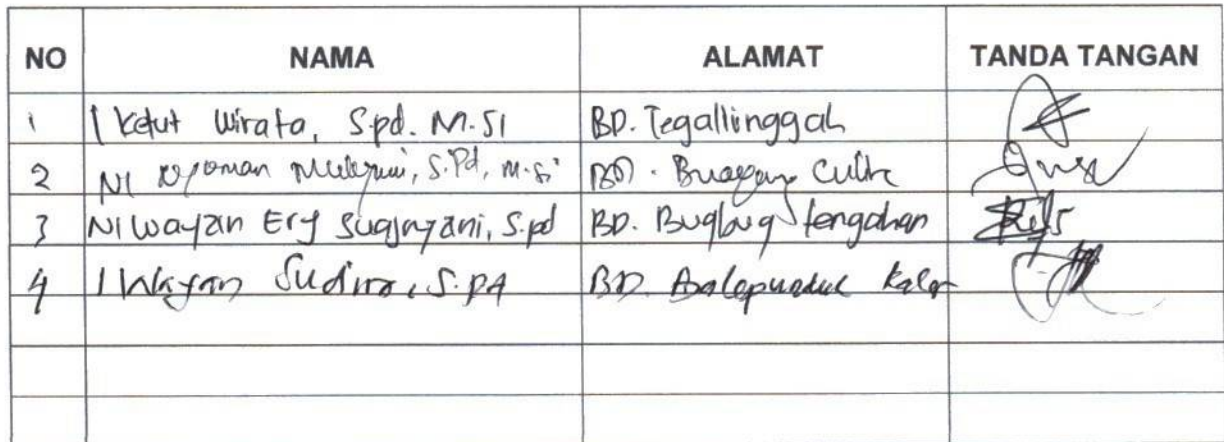 NO NAMA ALAMAT TANDA TANGAN
1 I Ketut Wirata, S.pd. M.Si BD. Tegallinggah
2 Ni Nyoman S.Pd, M.Si BD.
3 Ni Wayan Ery Sugjnyani, S.pd BD. Bugbug tengahan
4 I Wayan Sudira, S.Pd BD. Kaler